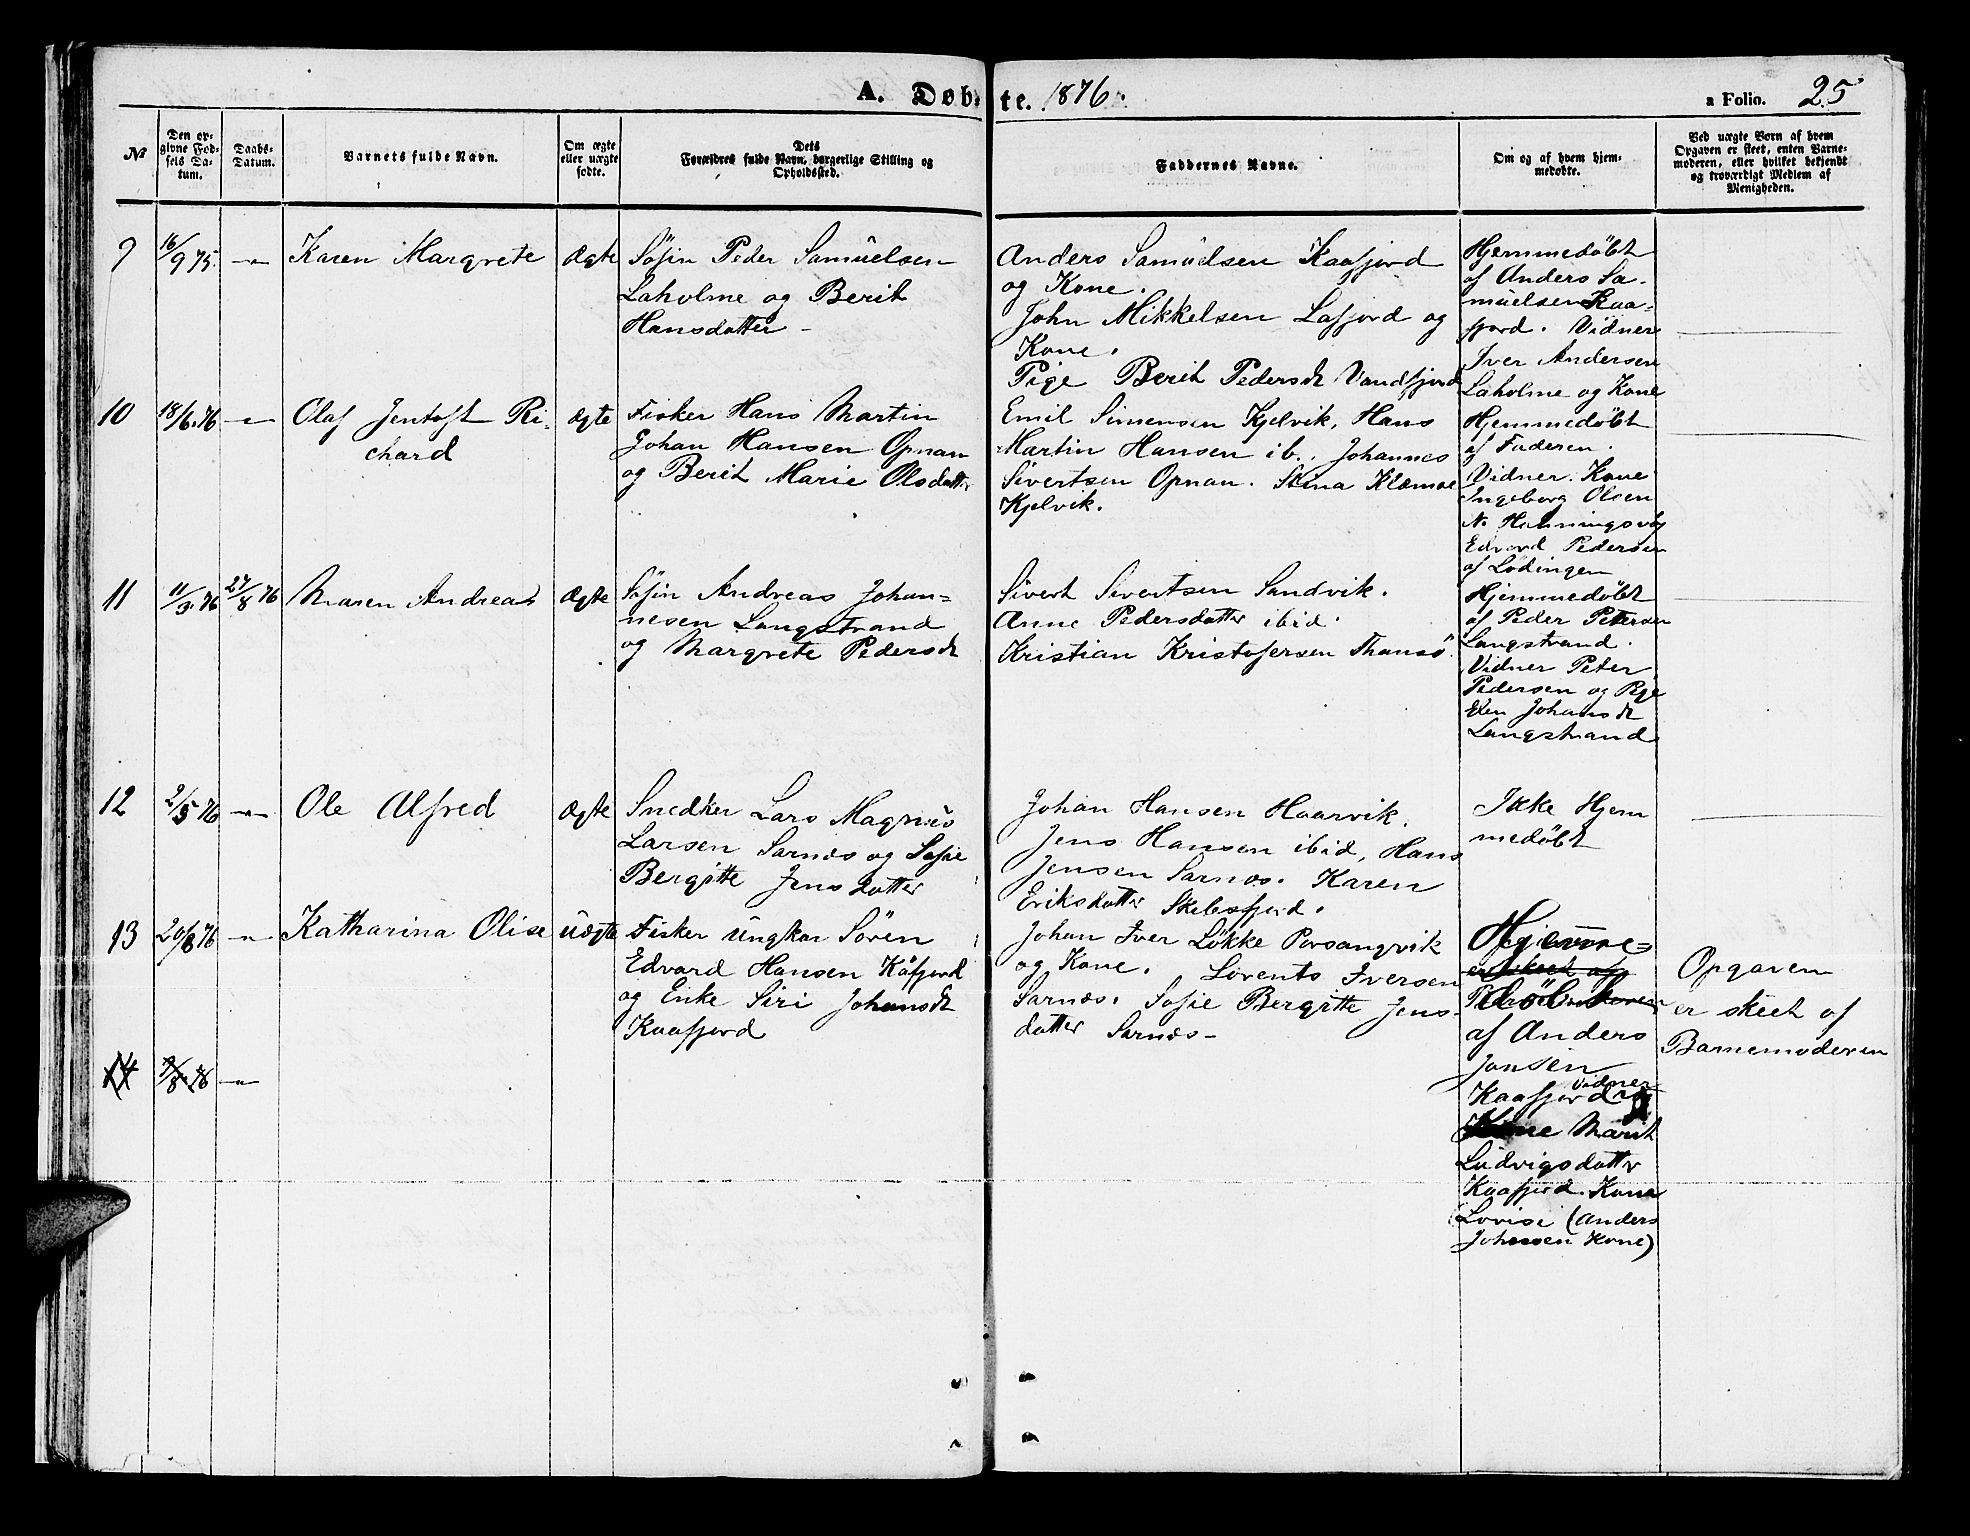 A. Døbte. 1876.
a Folio. 25
No
Den op-
givne Fød-
sels Da-
tum.
Daabs-
Datum.
Barnets fulde Navn.
Om ægte
eller uægte
fødte.
Dets
Forældres fulde Navn, borgerlige Stilling og
Opholdssted.
Faddernes Navne.
Om og af hvem hjem-
medøbte.
Ved uægte Børn af hvem
Opgaven er skeet, enten Barne-
moderen, eller hvilket bekjendt
og troværdigt Medlem af
Menigheden.
9
16/9 75.
-"-
Karen Margrete
Ægte
Søfin Peder Samuelsen
Laholme og Berit
Hansdatter
Anders Samuelsen Kaafjord
og Kone.
John Mikkelsen Lafjord og
Kone.
Pige Berit Pedersdt Vandfjord
Hjemmedøbt
af Anders Sa-
muelsen Kaa-
fjord. Vidner
Iver Andersen
Laholme og Kone
10
18/6. 76
-"-
Olaf Jentoft Ri-
chard
Ægte
Fisker Hans Martin
Johan Hansen Opnan
og Berit Marie Olsdatter
Emil Simensen Kjelvik, Hans
Martin Hansen ib. Johannes
Sivertsen Opnan. Stina Klemse
Kjelvik.
Hjemmedøbt
af Faderen.
Vidner. Kone
Ingeborg Olsen
N. Honningsvåg
Edvard Pedersen
af Lødingen
11
11/3. 76
27/8 76
Maren Andreas
Ægte
Søfin Andreas Johan-
nesen Langstrand
og Margrete Pedersdt
Sivert Sivertsen Sandvik.
Anne Pedersdatter ibid.
Kristian Kristofersen Thansø.
Hjemmedøbt
af Peder Petersen
Langstrand.
Vidner Peter
Pedersen og Pige
Elen Johansdt
Langstrand
12
2/5 76
-"-
Ole Alfred
Ægte
Snedker Lars Magnus
Larsen Sarnæs og Sofie
Bergitte Jensdatter
Johan Hansen Haarvik.
Jens Hansen ibid, Hans
Jensen Sarnæs. Karen
Eriksdatter Skibsfjord.
Ikke Hjem
medøbt
13
20/8 76
-"-
Katharina Olise
Uægte
Fisker Ungkar Søren
Edvard Hansen Kåfjord
og Enke Siri Johansdt
Kaafjord
Johan Iver Løkke Porsangvik
og Kone. Lorents Iversen
Sarnæs. Sofie Bergitte Jens-
datter Sarnæs-
Hjemme-
døbt
af Anders
Jansen
Vidner
Kaafjord
Kone Marit
Ludvigsdatter
Kaafjord. Kone
Lovise (Anders
Johnsen Kone)
Opgaven
er skeet af
Barnemoderen
14
-"-